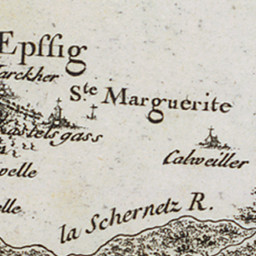 Epſſig
arckher
Ste Marguerite
astelsgass
Calweiller
velle
elle
la Schernetz R.